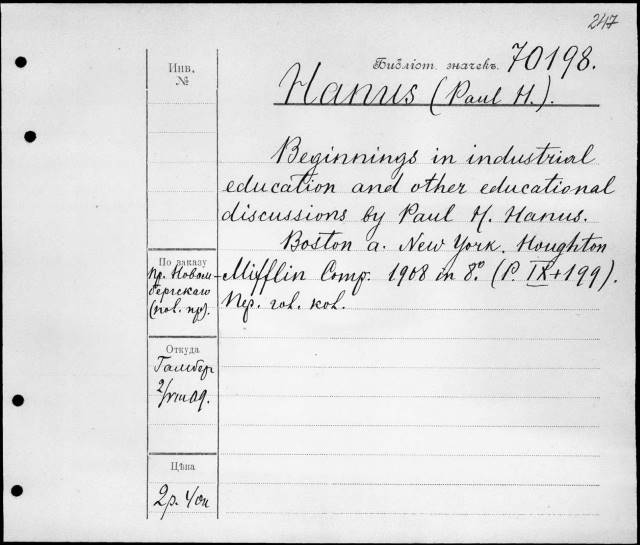 247
Инв. №
Библіот. значекъ. 70198.
Hanus (Paul H.).
Beginnings in industrial
education and other educational
discussions by Paul H. Hanus.
Boston a. New York. Houghton
Mifflin Comp. 1908 in 8.º (P. IX+199).
По заказу
Пр. Новом-
бергскаго
Откуда
2/VIII 09.
Цѣна
2р.